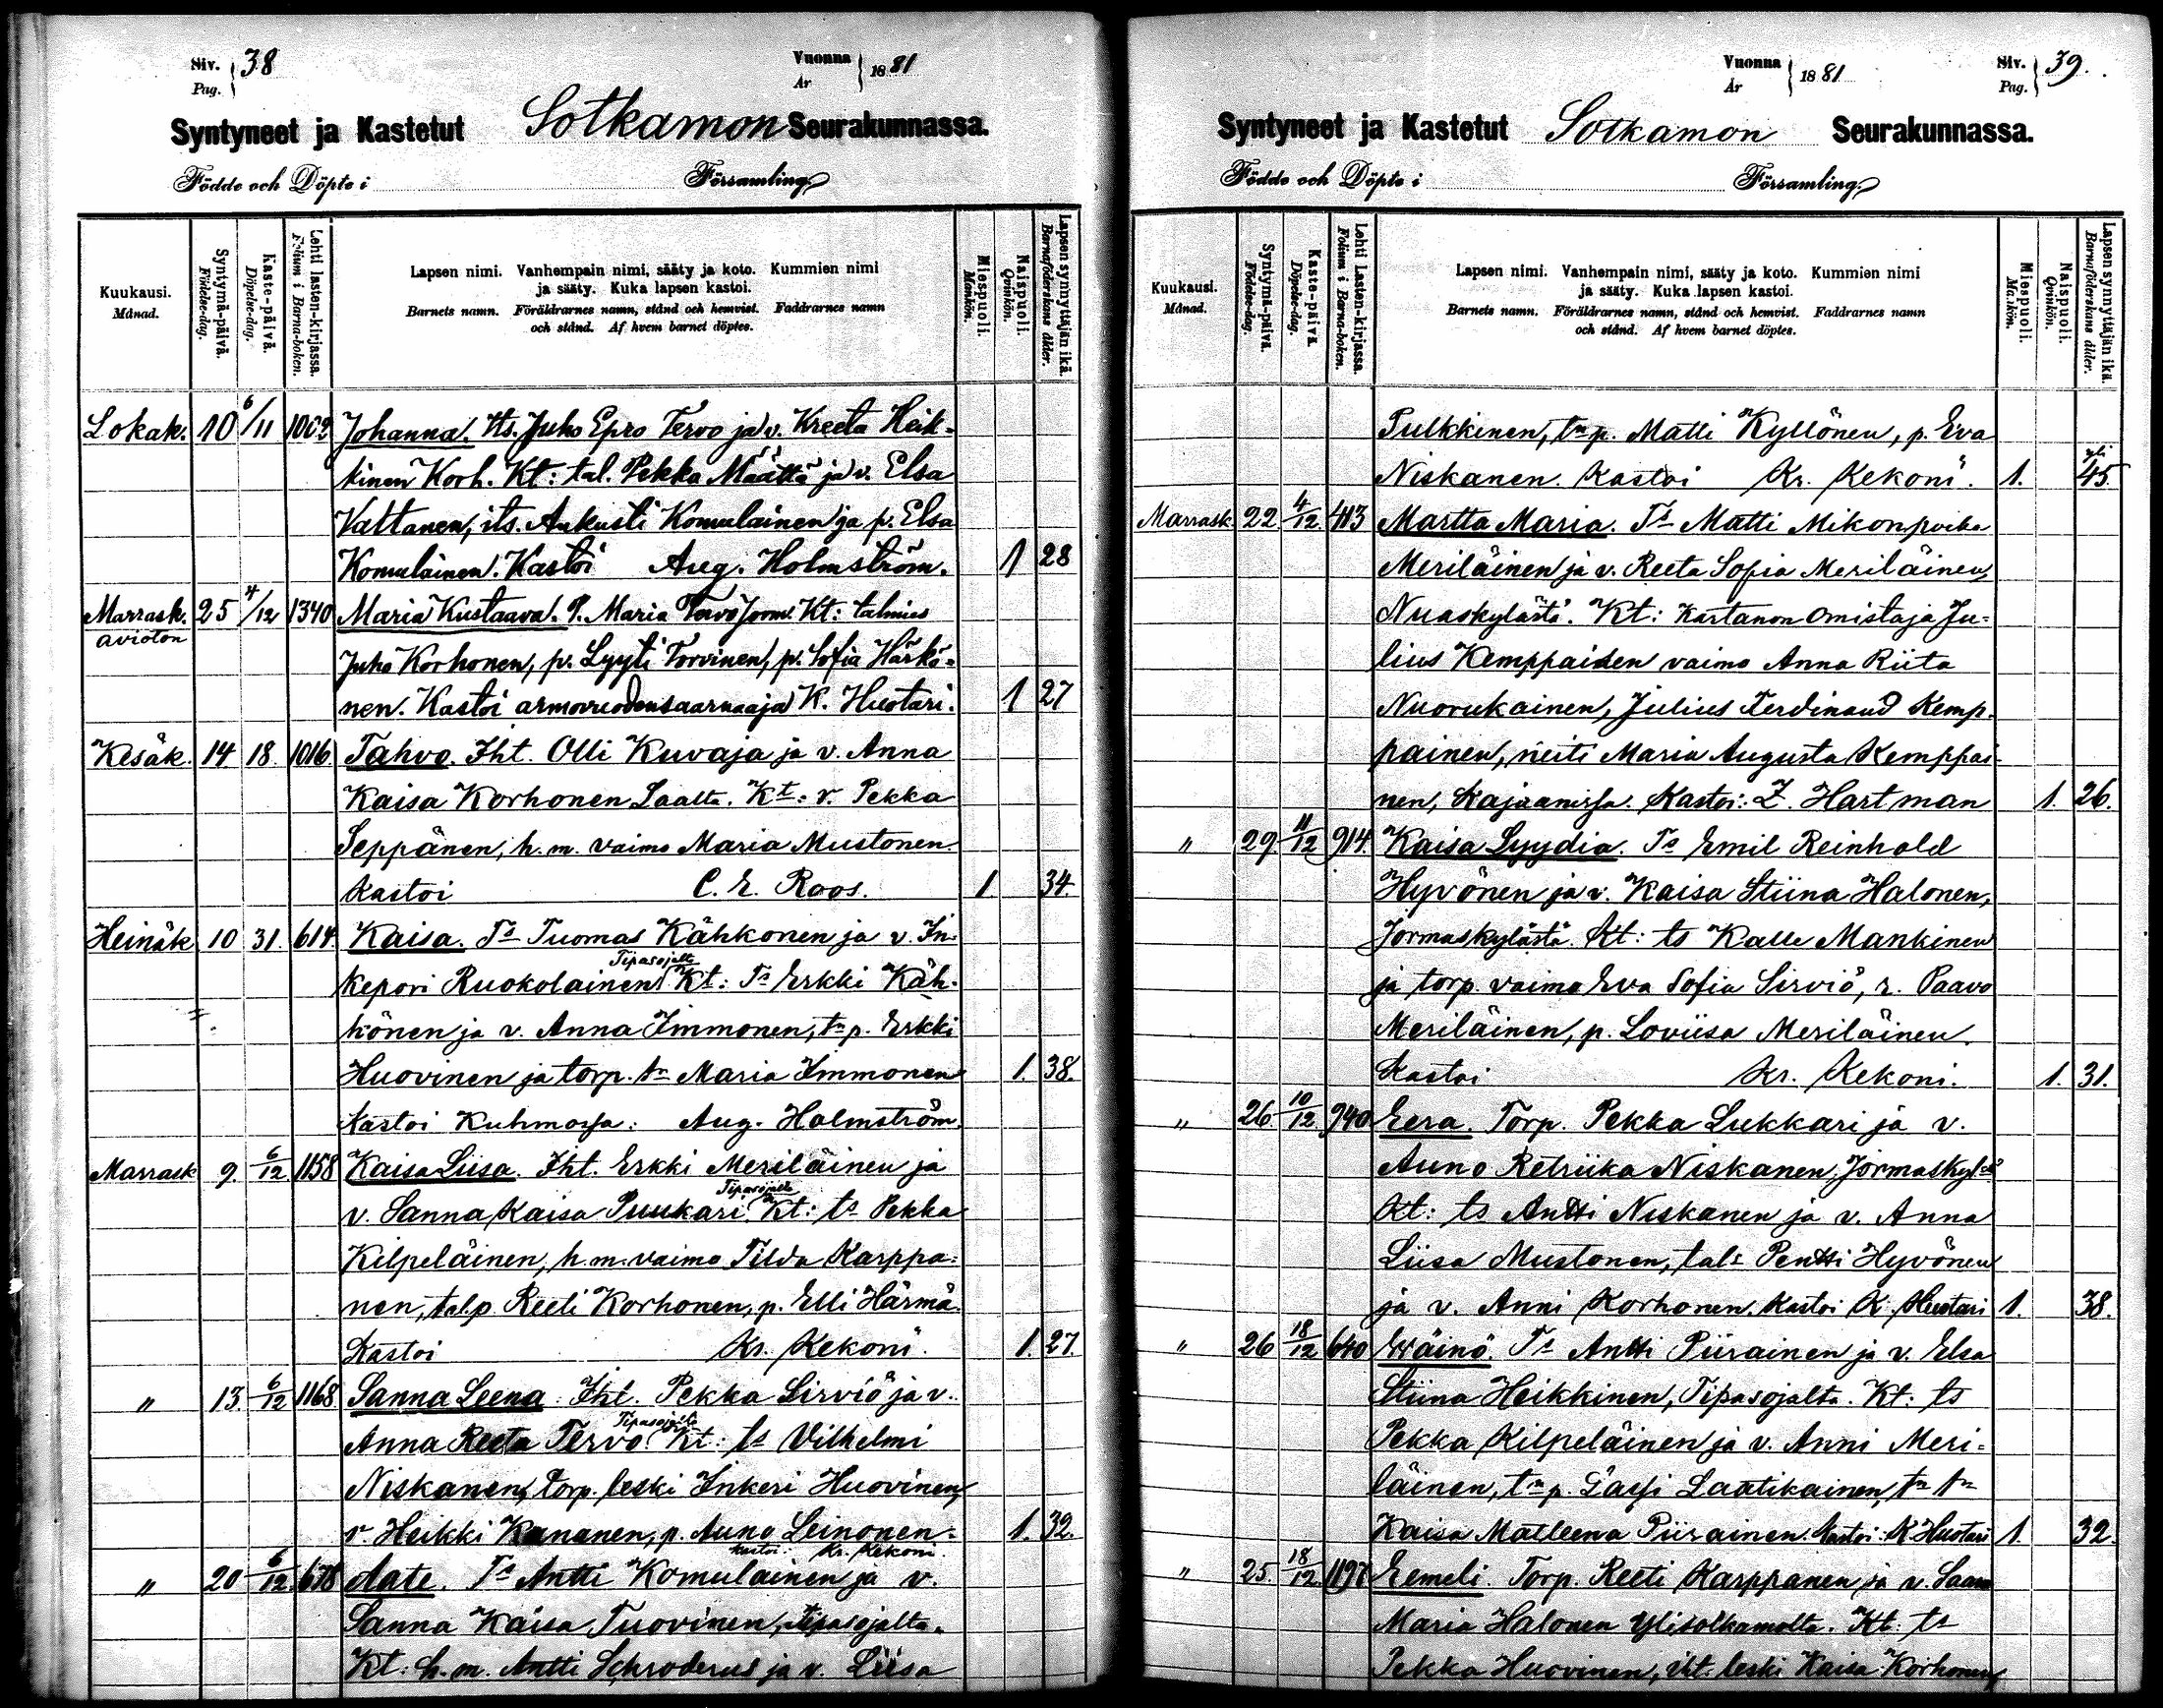 Siv. Pag. 38
Vuonna År 1881
Syntyneet ja Kastetut Sotkamon Seurakunnassa.
Födde och Döpte i Församling
Kuukausi. Månad.
Syntymä-päivä. Födelse-dag.
Kaste-päivä. Döpelse-dag.
Lehti lasten-kirjassa. Folium i Barna-boken.
Lapsen nimi. Vanhempain nimi, sääty ja koto. Kummien nimi
ja sääty. Kuka lapsen kastoi.
Barnets namn. Föräldrarnes namn, stånd och hemvist. Faddrarnes namn
och stånd. Af hvem barnet döptes.
Miespuoli. Mankön.
Naispuoli. Qvinkön.
Lapsen synnyttäjän ikä. Barnaföderskans ålder.
Lokak. 10 6/11 1002 Johanna. Its. Juho Epro Tervo ja v. Kreeta Heik-
kinen Korh. Kt: tal. Pekka Määttä ja v. Elsa
Valtanen, its. Aukusti Komulainen ja p. Elsa
Komulainen. Kastoi Aug. Holmström. 1 28
Marrask. 25 4/12 1340 Maria Kustaava. P. Maria Tervo Kt: talmies
avioton
Juho Korhonen, p. Lyyti Torvinen, p. Sofia Härkö-
nen. Kastoi armovuodensaarnaaja K. Huotari. 1 27
Kesäk. 14 18. 1016 Tahvo. Iht. Olli Kuvaja ja v. Anna
Kaisa Korhonen Laalta. Kt: v. Pekka
Seppänen, h. m. vaimo Maria Mustonen.
Kastoi C. E. Roos. 1. 34.
Heinäk 10 31. 614 Kaisa. Ts Tuomas Kähkonen ja v. In-
Tipasojalta
kepori Ruokolainen Kt: Ts Erkki Käh-
könen ja v. Anna Immonen, tn p. Erkki
Huovinen ja torp. tr Maria Immonen 1. 38.
Kastoi Kuhmossa: Aug. Holmström.
Marrask 9. 6/12 1158 Kaisa Liisa. Iht. Erkki Meriläinen ja
Tipasojalta
v. Sanna Kaisa Puukari. Kt: ts Pekka
Kilpeläinen, h. m. vaimo Tilda Karppa-
nen, tal.p. Reeti Korhonen, p. Elli Härmä.
Kastoi Kr. Kekoni. 1. 27
" 13. 6/12 1168 Sanna Leena. Iht. Pekka Sirviö ja v.
Tipasojalta
Anna Reeta Tervo. Kt: ts Vilhelmi
Niskanen, torp. leski Inkeri Huovinen,
r. Heikki Kananen, p. Auno Leinonen. 1. 32.
Kastoi: Kr. Kekoni.
" 20 6/12 678 Aate. Ts Antti Komulainen ja v.
Sanna Kaisa Tuovinen, Tipasojalta.
Kt: h. m. Antti Schroderus ja v. Liisa
Vuonna År 1881
Siv. Pag. 39.
Syntyneet ja Kastetut Sotkamon Seurakunnassa.
Födde och Döpte i Församling
Kuukausi. Månad.
Syntymä-päivä. Födelse-dag.
Kaste-päivä. Döpelse-dag.
Lehti Lasten-kirjassa. Folium i Barna-boken.
Lapsen nimi. Vanhempain nimi, sääty ja koto. Kummien nimi
ja sääty. Kuka lapsen kastoi.
Barnets namn. Föräldrarnes namn, stånd och hemvist. Faddrarnes namn
och stånd. Af hvem barnet döptes.
Miespuoli. Mankön.
Naispuoli. Qvinkön.
Lapsen synnyttäjän ikä. Barnaföderskans ålder.
Pulkkinen, tn p. Matti Kyllönen, p. Eva
Niskanen. Kastoi Kr. Kekoni. 1. yli 45
Marrask 22 4/12. 413 Martta Maria. Ts Matti Mikonpoika
Meriläinen ja v. Reeta Sofia Meriläinen,
Nuaskylästä. Kt: Kartanon omistaja Ju-
lius Kemppaisen vaimo Anna Riita
Nuorukainen, Julius Ferdinand Kemp-
painen, neiti Maria Augusta Kemppai-
nen, Kajaanissa. Kastoi: Z. Hartman 1. 26.
" 29. 11/12 914. Kaisa Lyydia. Ts Emil Reinhold
Hyvönen ja v. Kaisa Stiina Halonen,
Jormaskylästä. Kt: ts Kalle Mankinen
ja torp. vaimo Eva Sofia Sirviö, r. Paavo
Meriläinen, p. Loviisa Meriläinen.
Kastoi Kr. Kekoni. 1. 31.
" 26. 10/12. 940 Eera. Torp. Pekka Lukkari ja v.
Auno Retriika Niskanen, Jormaskylstä
Kt: ts Antti Niskanen ja v. Anna
Liisa Mustonen, tals Pentti Hyvönen
ja v. Anni Korhonen. Kastoi K. Huotari 1. 38.
" 26 18/12 640 Wäinö. Ts Antti Piirainen ja v. Elsa
Stiina Heikkinen, Tipasojalta. Kt: ts
Pekka Kilpeläinen ja v. Anni Meri-
läinen, tn p. Lassi Laatikainen, tn tr
Kaisa Matleena Piirainen. Kastoi: K Huotari 1. 32.
" 25. 18/12 1197 Eemeli. Torp. Reeti Karppanen ja v. Saara
Maria Halonen Ylisotkamolta. Kt: ts
Pekka Huovinen, iht. leski Kaisa Korhonen,